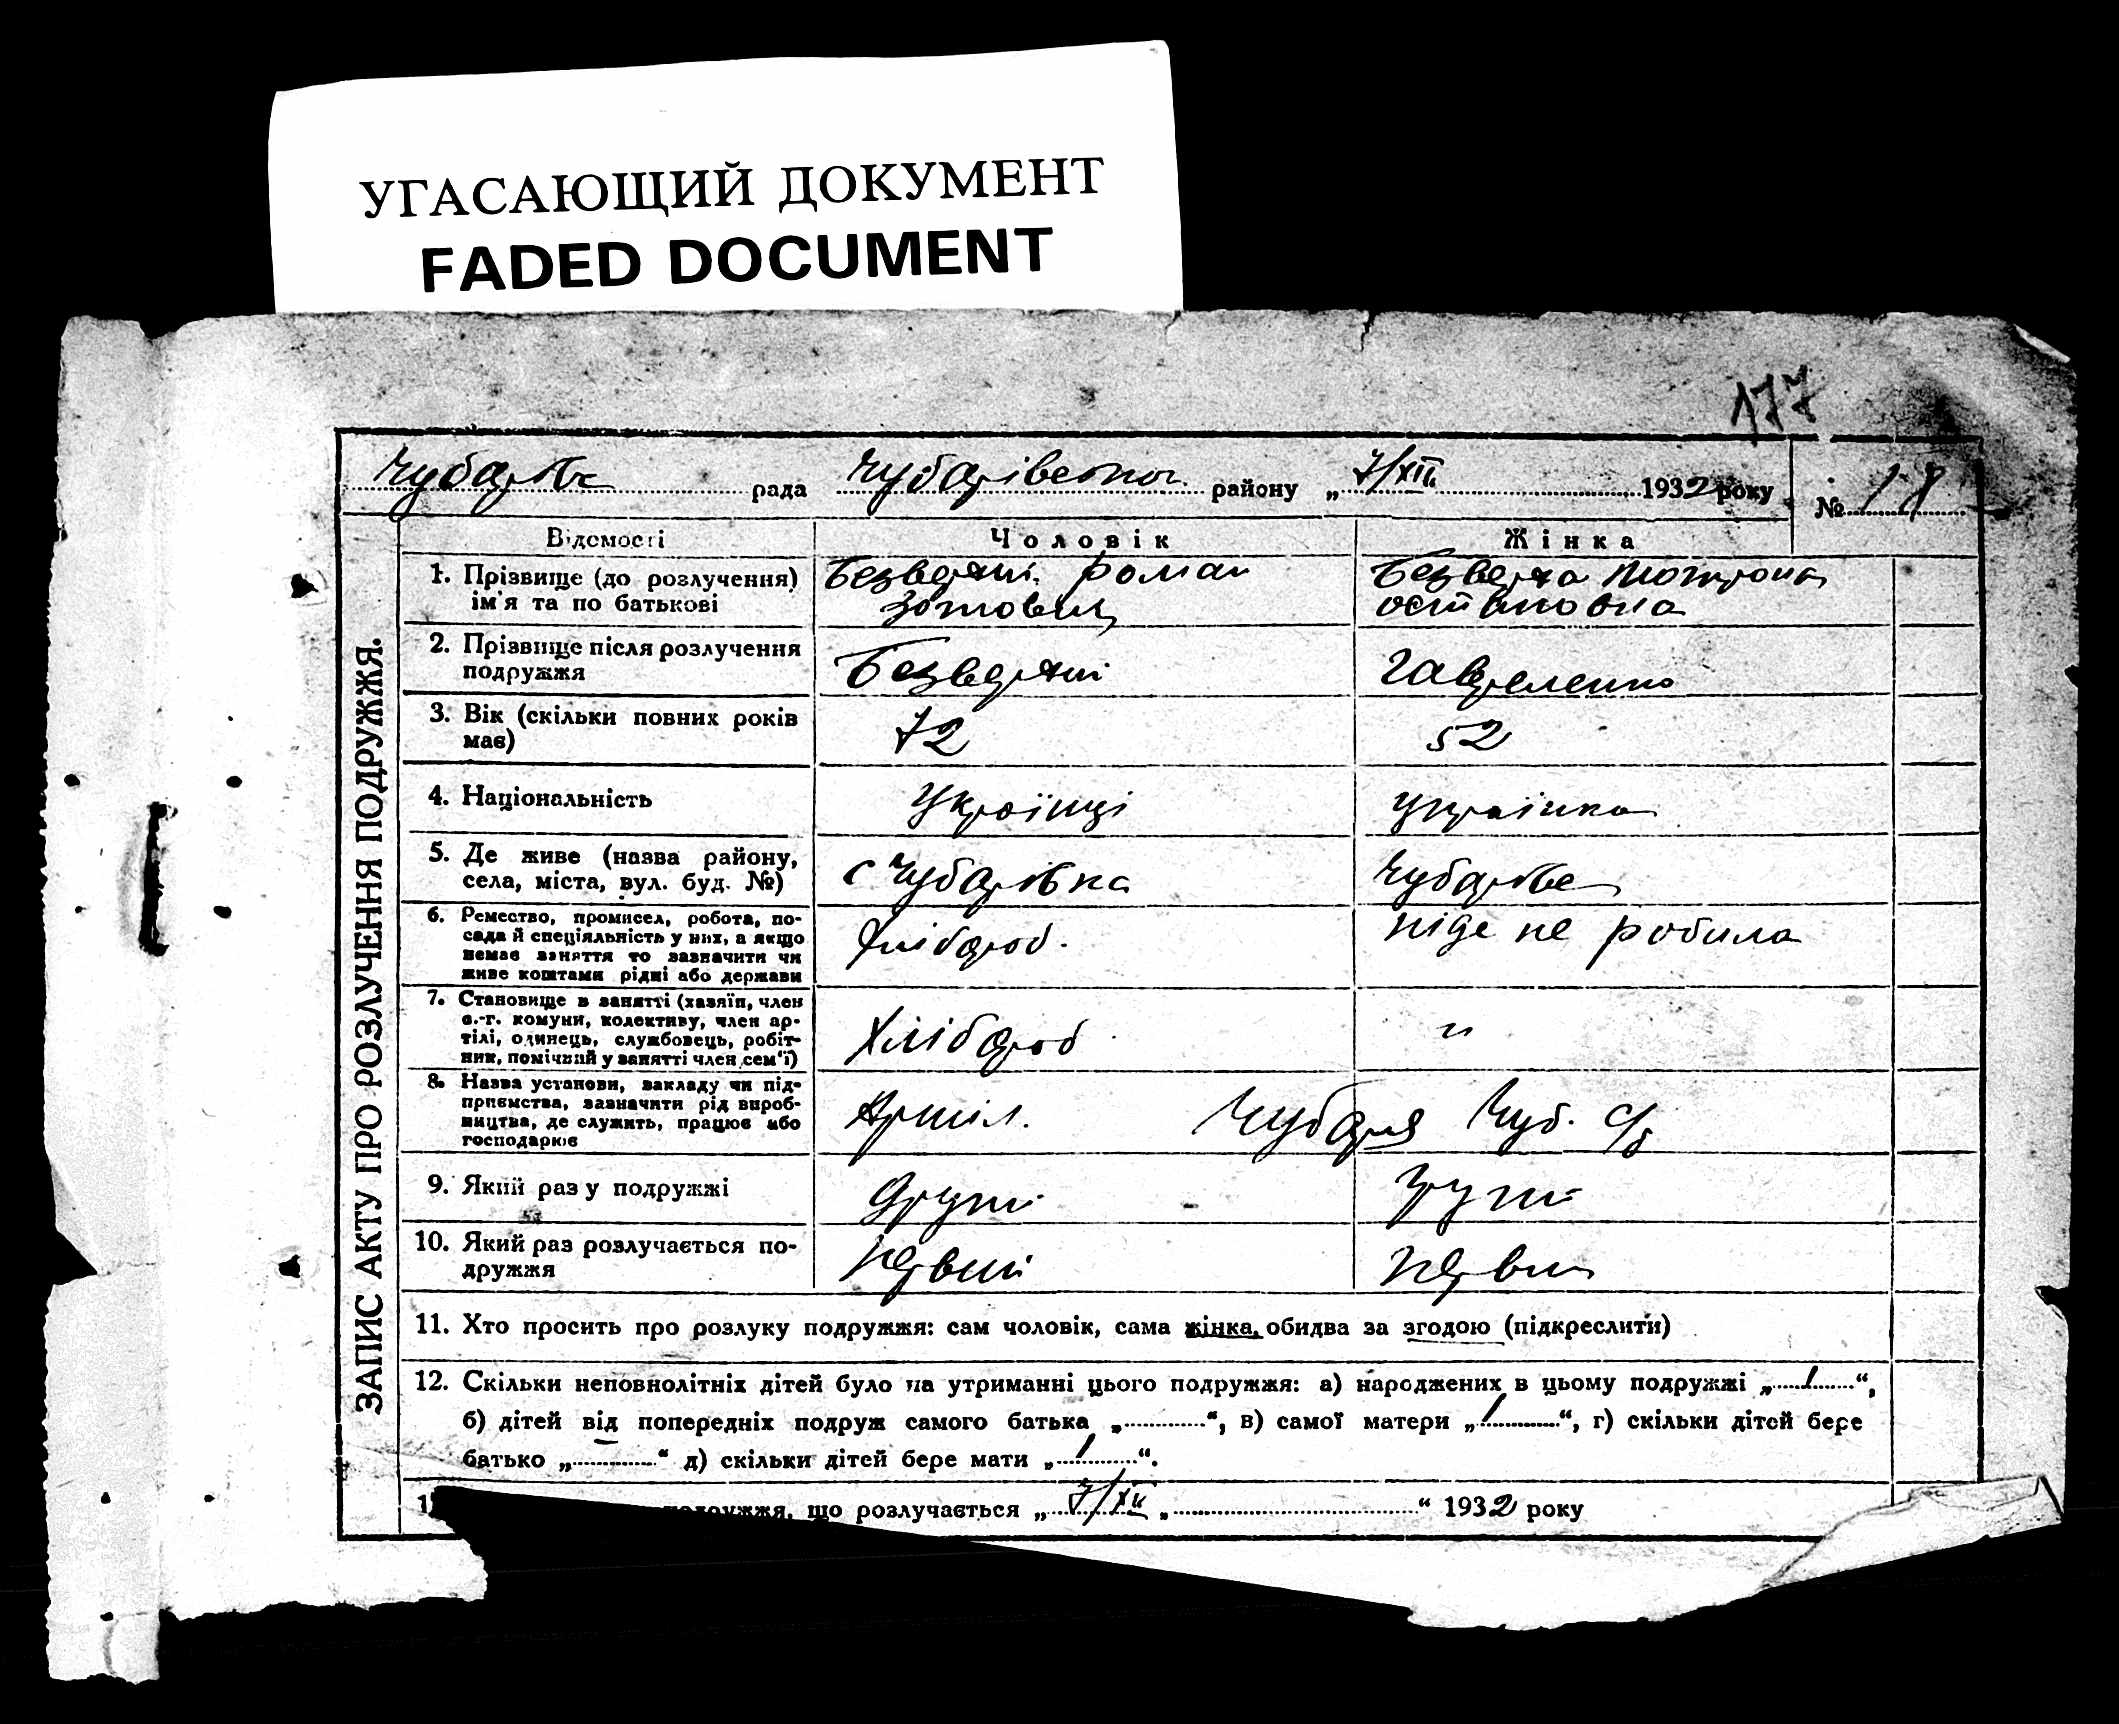 УГАСАЮЩИЙ ДОКУМЕНТ
FADED DOCUMENT
177
рада Чубарівского району „ 7/XII. 1932 року № 18
ЗАПИС АКТУ ПРО РОЗЛУЧЕННЯ ПОДРУЖЖЯ.
Відомості Чоловік Жінка
1. Прізвище (до розлучення) Безверхні. Роман Безверха
ім'я та по батькові Зотович
2. Прізвище після розлучення Безверхні Гавреленко
подружжя
3. Вік (скільки повних років 72 52
має)
4. Національність Українці українка
5. Де живе (назва району, с Чубарівка
села, міста, вул. буд. №)
6. Ремество, промисел, робота, по- Хлібороб. ніде не робила
сада й спеціяльність у них, а якщо
немає заняття то зазначити чи
живе коштами рідні або держави
7. Становище в занятті (хазяїн, член Хлібороб "
с.-г. комуни, колективу, член ар-
тілі, одинець, службовець, робіт-
ник, помічний у занятті член сем'ї)
8. Назва установи, закладу чи під- Артіл. Чубаря Чуб. с/р
приємства, зазначити рід вироб-
ництва, де служить, працює або
господарює
9. Який раз у подружжі другі
10. Який раз розлучається по- первий первий
дружжя
11. Хто просить про розлуку подружжя: сам чоловік, сама жінка, обидва за згодою (підкреслити)
12. Скільки неповнолітніх дітей було на утриманні цього подружжя: а) народжених в цьому подружжі „ / “,
б) дітей від попередніх подруж самого батька „ “, в) самої матери „ / “, г) скільки дітей бере
батько „ — “ д) скільки дітей бере мати „ / “.
подружжя, що розлучається „ 7/XII „ “ 1932 року